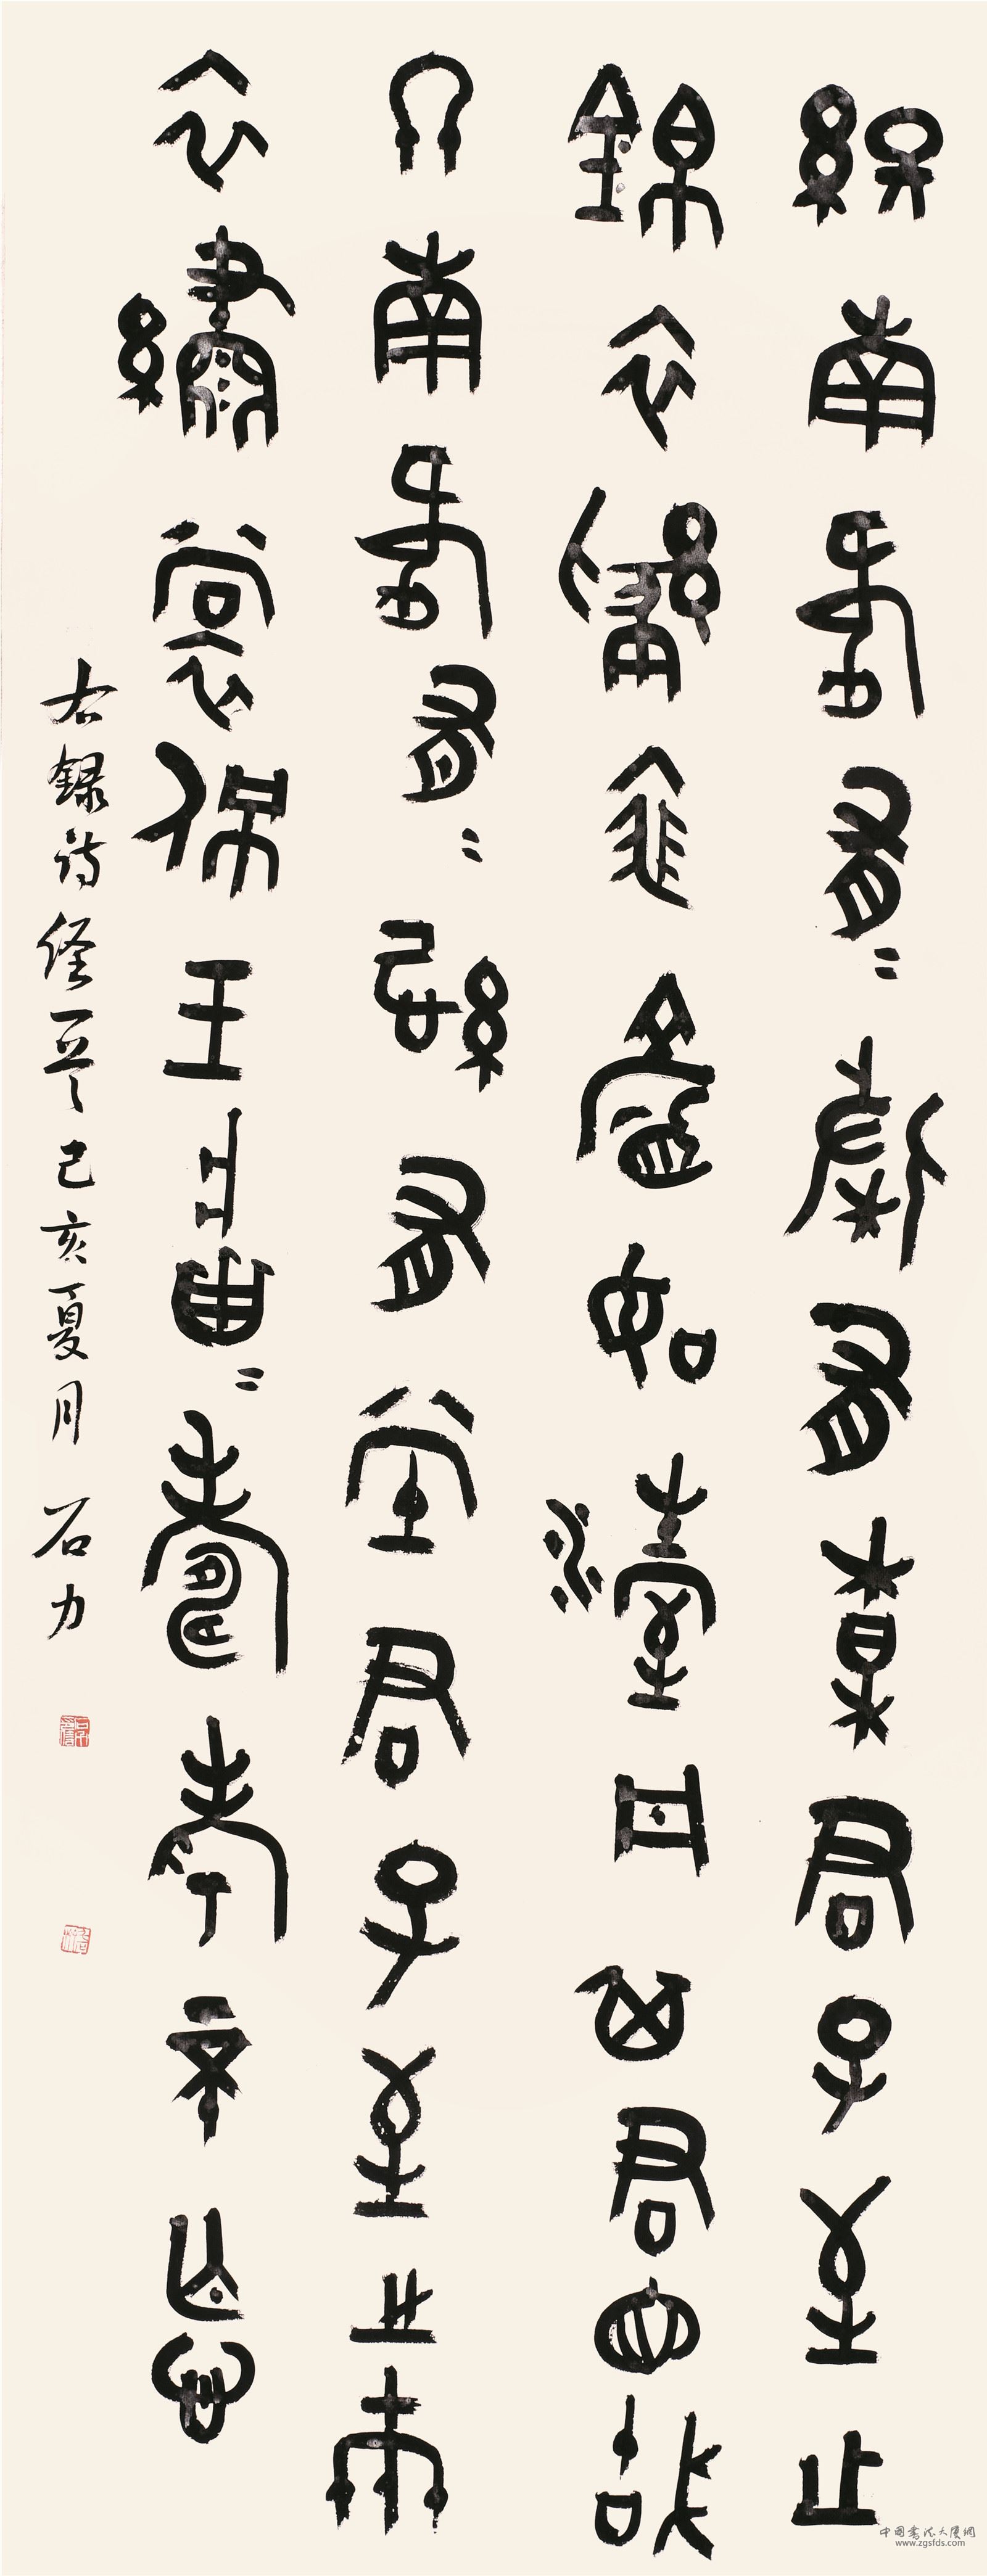 終南何有〻條有梅君子至止
錦衣狐裘顏如渥丹其君也哉
終南何有〻紀有堂君子至止黻
衣繡裳佩玉將〻壽考不忘
右録詩經一章己亥夏月 石力
中國書法大廈網
www.zgsfds.com